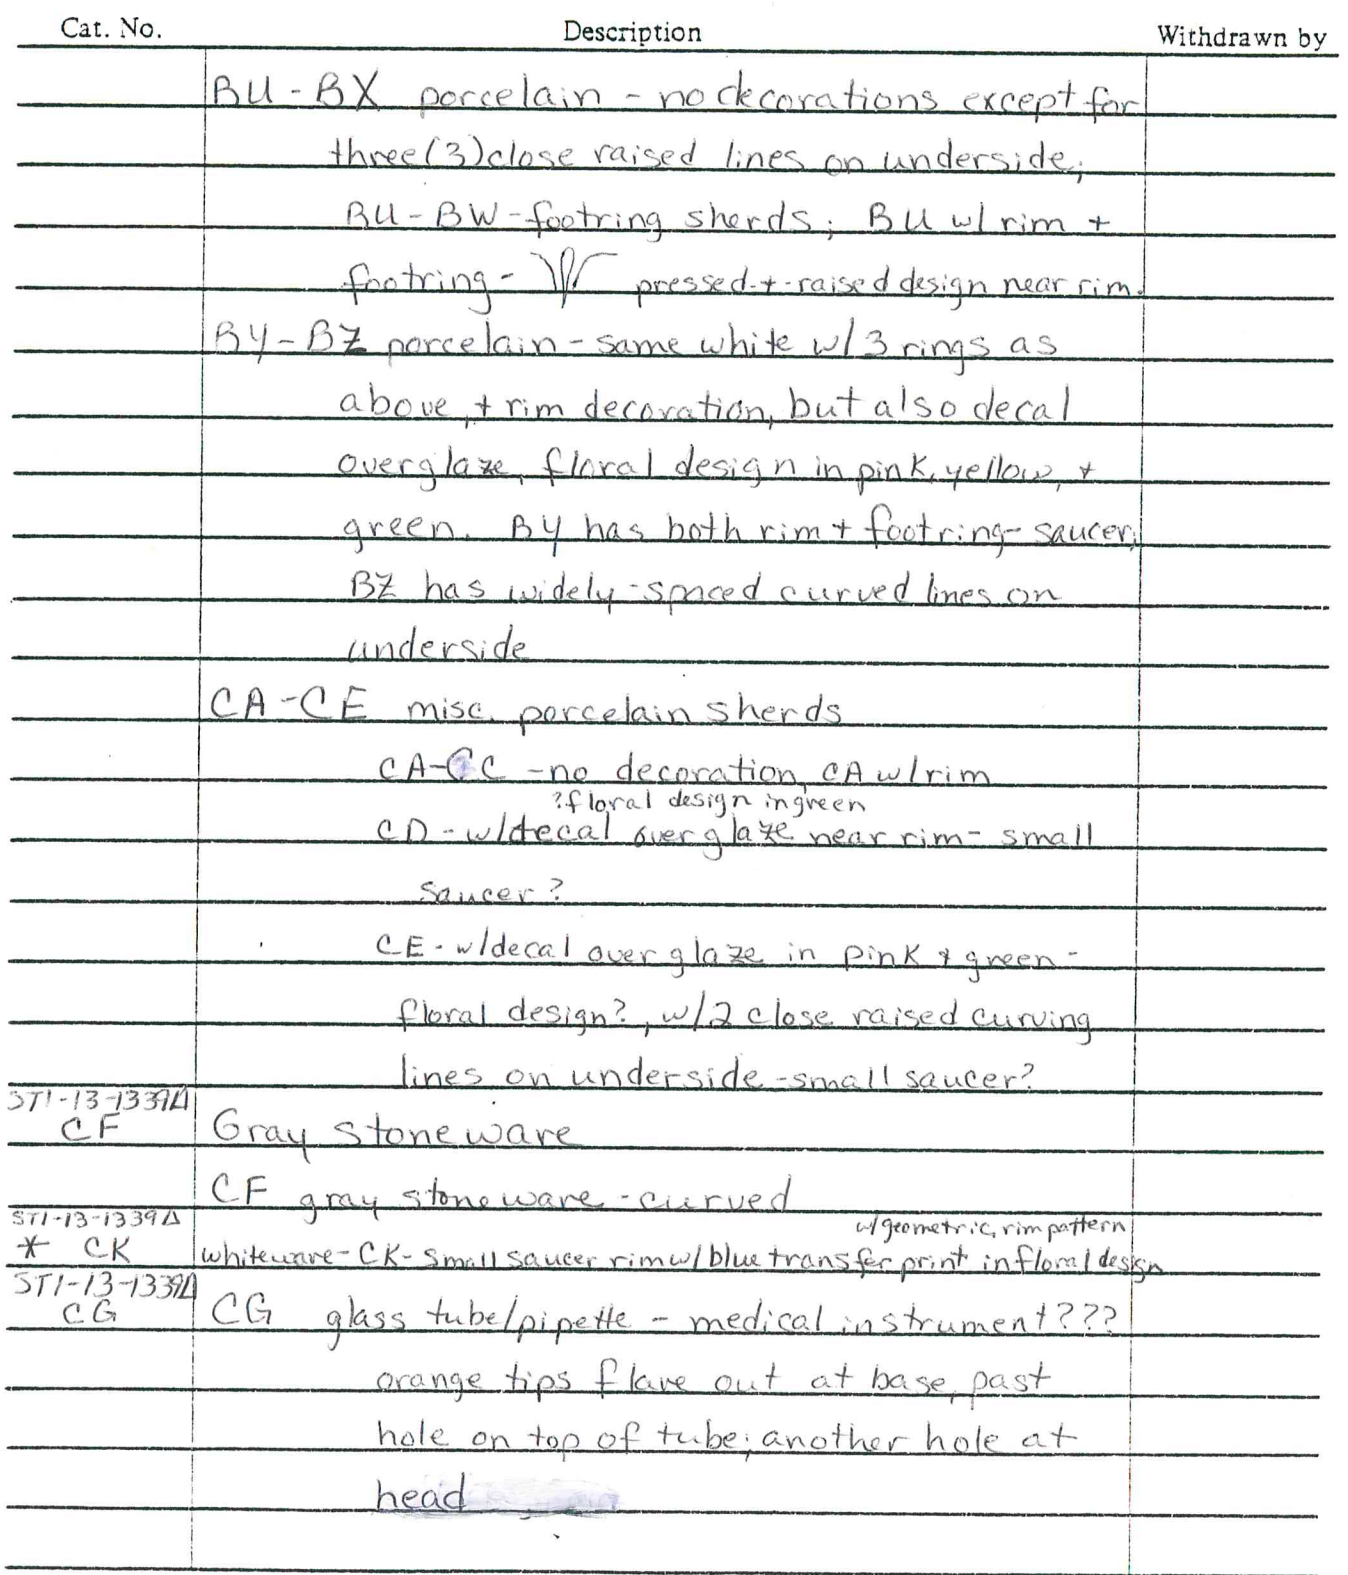 Cat. No. Description Withdrawn by
BU - BX porcelain - no decorations except for
three (3) close raised lines on underside;
BU - BW - footring sherds; BU w/ rim +
footring - pressed + raised design near rim.
BY - BZ porcelain - same white w/ 3 rings as
above, + rim decoration, but also decal
overglaze, floral design in pink, yellow, +
green. BY has both rim + footring - saucer;
BZ has widely-spaced curved lines on
underside
CA - CE misc. porcelain sherds
CA-CC - no decoration, CA w/ rim
? floral design in green
CD - w/decal overglaze near rim - small
saucer?
CE - w/decal overglaze in pink + green -
floral design?, w/2 close raised curving
lines on underside - small saucer?
ST1-13-1339Δ
CF Gray stoneware
CF gray stoneware - curved
ST1-13-1339Δ w/geometric, rim pattern
* CK whiteware - CK - small saucer rim w/ blue transfer print in floral design
ST1-13-1339Δ
CG CG glass tube/pipette - medical instrument???
orange tips flare out at base, past
hole on top of tube; another hole at
head